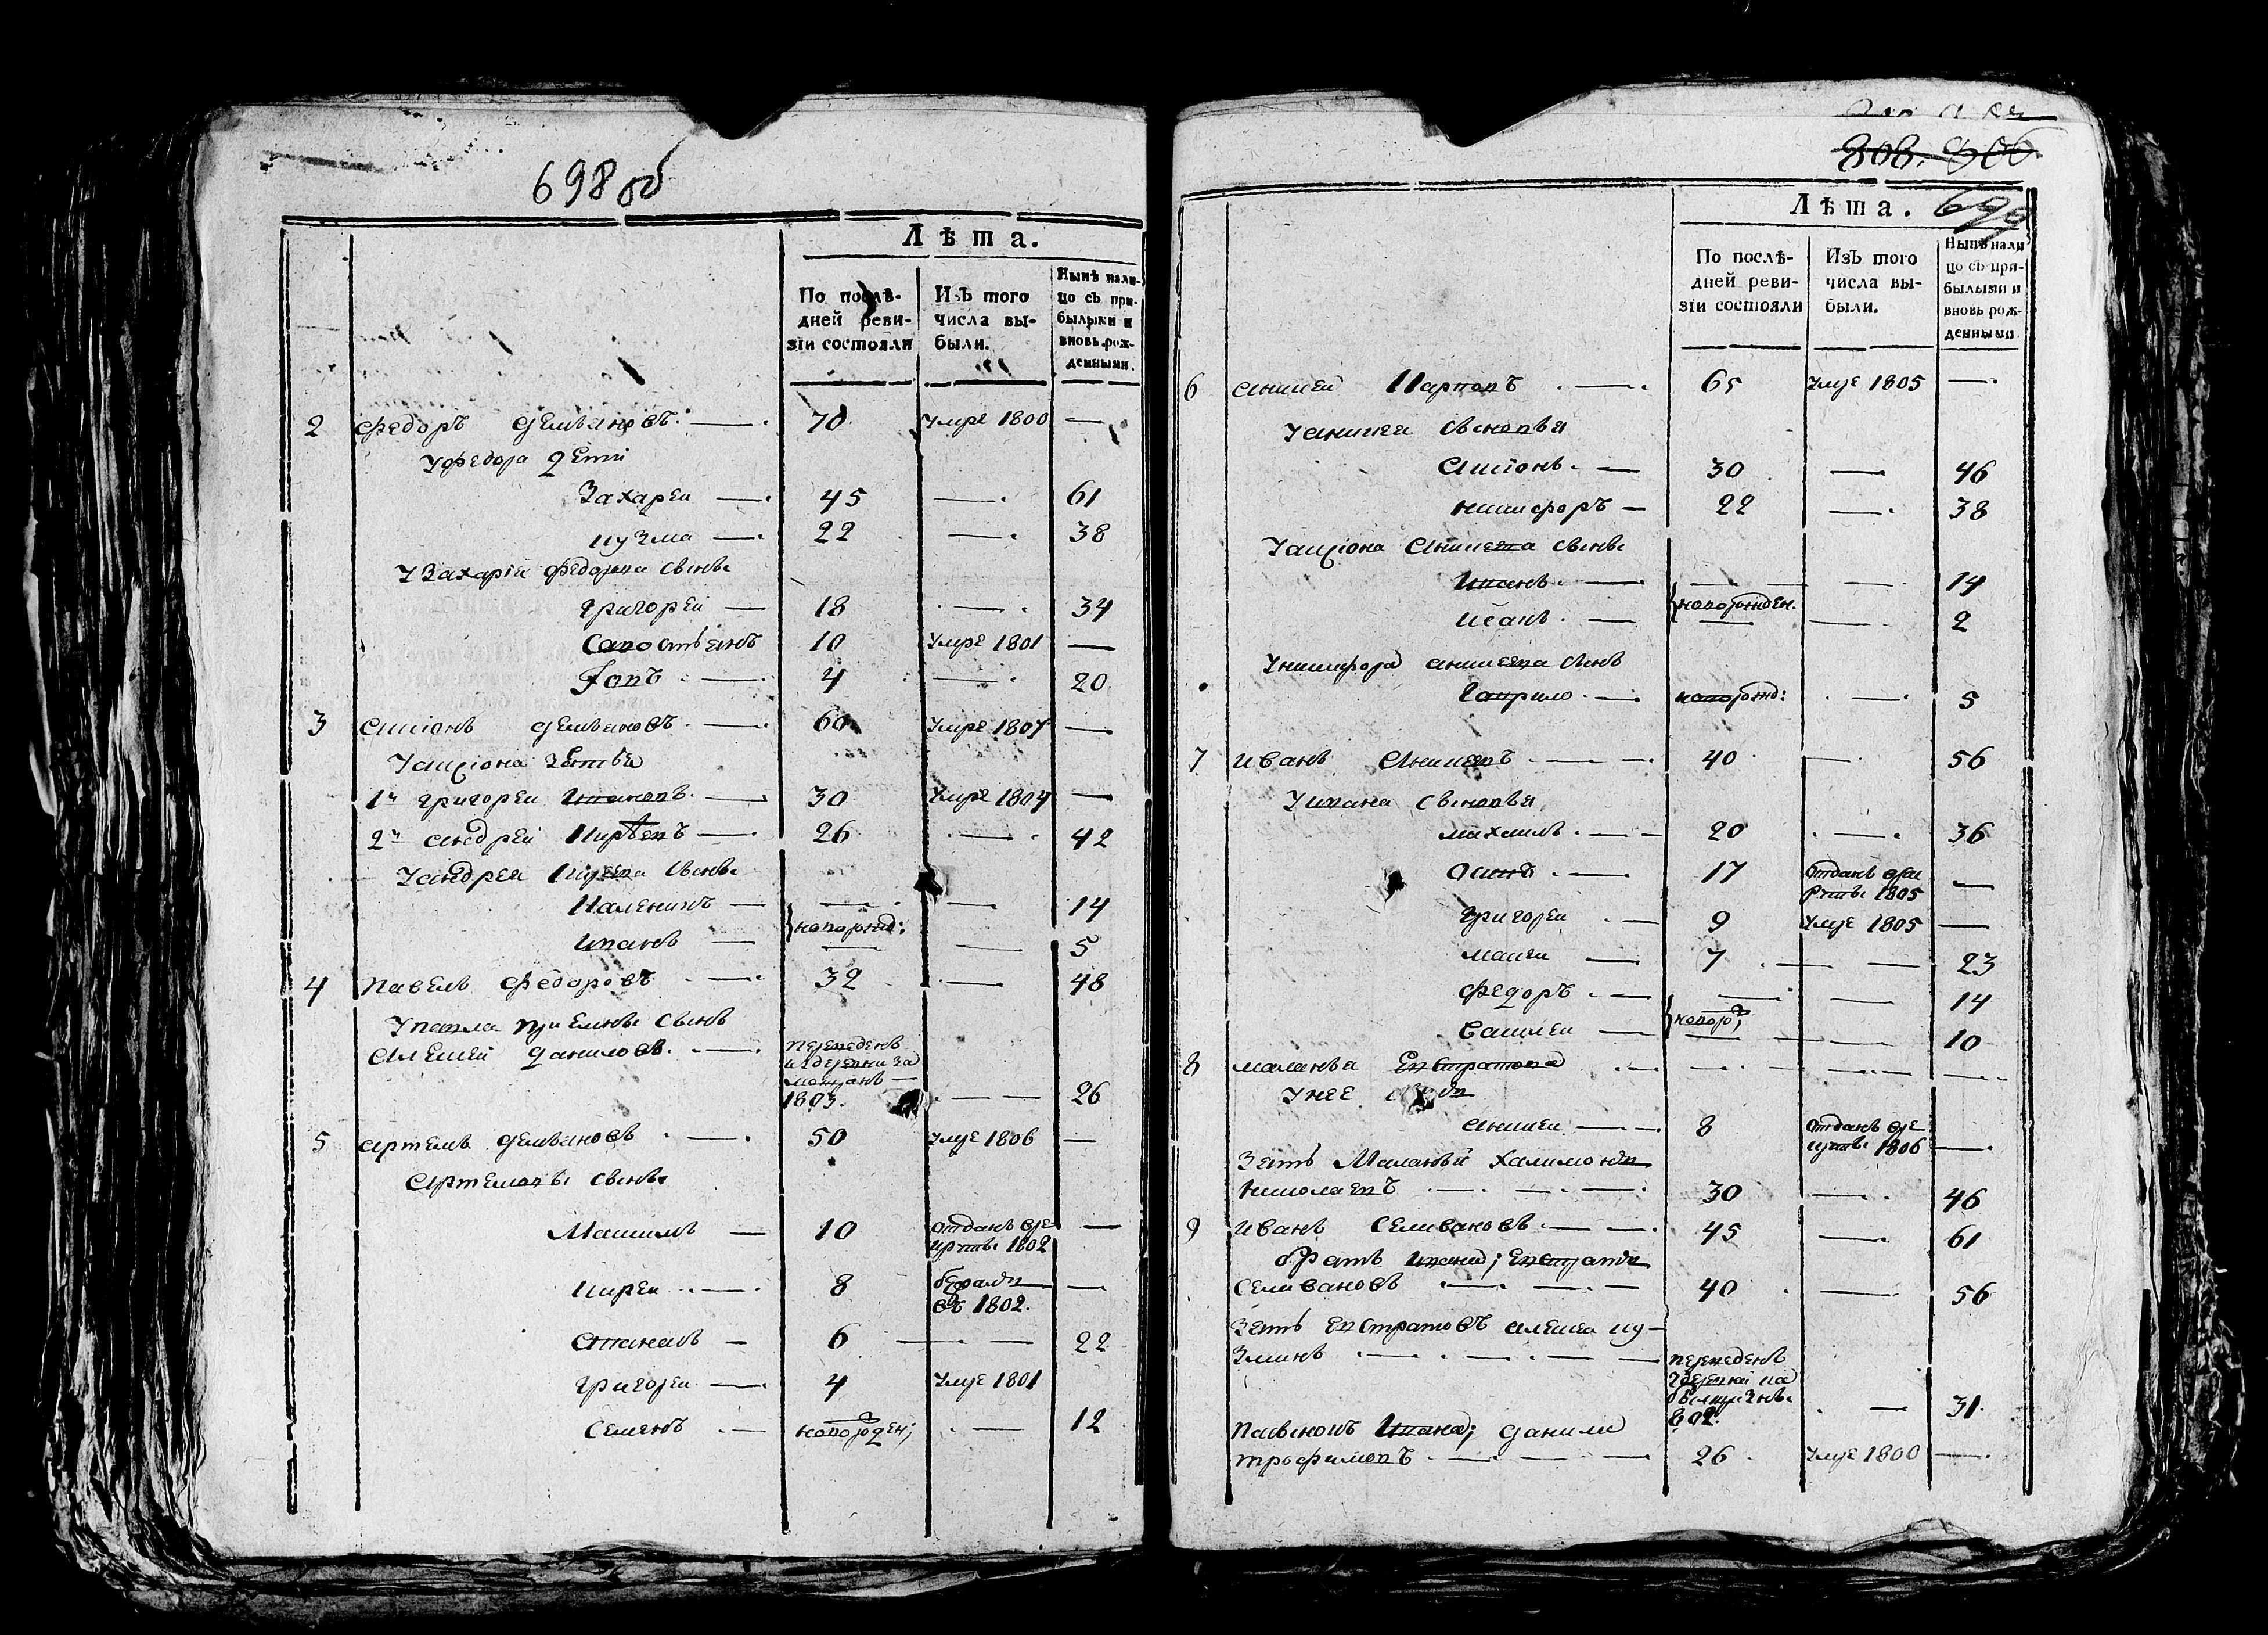 698 об
Лѣта.
По послѣ-
дней реви-
зіи состояли
ИзЪ того
числа вы-
были.
Нынѣ нали-
цо съ при-
былыми и
вновь рож-
денными.
2 Федоръ Демьановъ 70 умре 1800 —
У Федора Дети
Захареи 45 — 61
кузма 22 — 38
У Захарія Федорова сынь
григореи 18 — 34
Савостьянъ 10 умре 1801 —
Іовъ 4 — 20
3 Аксіонъ Демьановъ 60 умре 1807 —
У Аксіона Зятья
1й григореи Ивановъ 30 умре 1804 —
2й Андреи Киреевъ 26 — 42
У Андрея Киреева сынь
Каленикъ — — 14
новорожд:
Иванъ — — 5
4 Павелъ Федоровъ 32 — 48
У Павла приемныи сынъ
Алексеи Даниловъ
переведенъ
из деревни За
мощанъ
1803. — 26
5 Артемъ Демьановъ 50 умре 1806 —
Артемовы сынь
Максимъ 10 отданъ вре
круты 1802 —
Киреи 8 бежалъ
въ 1802. —
Степанъ 6 — 22
григореи 4 умре 1801
Семенъ новорожден; — 12
808. 806
699
Лѣта.
По послѣ-
дней реви-
зіи состояли
ИзЪ того
числа вы-
были.
Нынѣ нали
цо съ при-
былыми и
вновь рож-
денными.
6 Аникеи Карповъ 65 умре 1805 —
У Аникея сыновья
Аксіонъ 30 — 46
никифоръ 22 — 38
У Аксіона Аникеева сынь
Иванъ — — 14
новорожден.
Исакъ — — 2
У никифора аникеева сынъ
Гаврило новорожд: — 5
7 Иванъ Аникеевъ 40 — 56
У Ивана сыновья
михаилъ 20 — 36
Осипъ 17 отданъ вре
круты 1805 —
григореи 9 умре 1805 —
макеи 7 — 23
федоръ — — 14
новорожд;
Василеи — — 10
8 маланья Евстратова — — —
У нее
Аникеи 8 отданъ вре
круты 1806 —
Зять Маланьи Халимонъ
Николаевъ 30 — 46
9 Иванъ Селивановъ 45 — 61
братъ Ивана; Евстратъ
Селивановъ 40 — 56
Зять Евстратовъ алексеи ку-
зминъ
переведенъ
802. — 31
Пасынокъ Ивана; Данило
трофимовъ 26 умре 1800 —